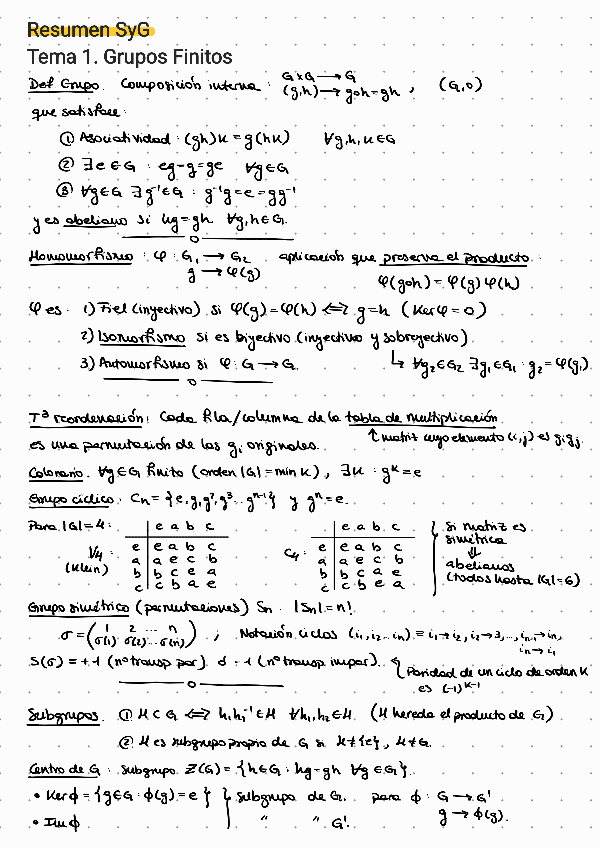 Resumen SyG
Tema 1. Grupos Finitos
Def Grupo. Composición interna: G×G → G
(g,h) → g∘h = gh , (G,∘)
que satisface:
① Asociatividad: (gh)k = g(hk) ∀g,h,k∈G
② ∃e∈G : eg=g=ge ∀g∈G
③ ∀g∈G ∃g⁻¹∈G : g⁻¹g=e=gg⁻¹
y es abeliano si hg=gh ∀g,h∈G.
Homomorfismo: φ: G₁ → G₂ aplicación que preserva el producto:
g → φ(g) φ(g∘h) = φ(g)φ(h)
φ es: 1) Fiel (inyectivo) si φ(g)=φ(h) ⟺ g=h (Kerφ=0)
2) Isomorfismo si es biyectivo (inyectivo y sobreyectivo).
3) Automorfismo si φ: G → G. ↳ ∀g₂∈G₂ ∃g₁∈G₁ : g₂=φ(g₁)
Tª reordenación: Cada fila/columna de la tabla de multiplicación
es una permutación de los gᵢ originales. ↑ matriz cuyo elemento (i,j) es gᵢgⱼ
Colorario. ∀g∈G finito (orden |G| = min k), ∃k : gᵏ=e
Grupo cíclico: Cn = {e, g, g², g³... gⁿ⁻¹} y gⁿ=e.
Para |G|=4: e a b c e a b c si matriz es
V4: e e a b c C4: e e a b c simétrica
(Klein) a a e c b a a e c b ⇓
b b c e a b b c a e abelianos
c c b a e c c b e a (todos hasta |G|=6)
Grupo simétrico (permutaciones) Sn. |Sn|=n!
σ = (1 2 ... n / σ(1) σ(2) ... σ(n)) ; Notación ciclos (i₁, i₂... iₙ) ≡ i₁→i₂, i₂→3,..., iₙ₋₁→iₙ,
iₙ→i₁
S(σ) = +1 (nº transp par) ó -1 (nº transp impar). Paridad de un ciclo de orden k
es (-1)ᵏ⁻¹
Subgrupos. ① H⊂G ⟺ h₁h₂⁻¹∈H ∀h₁,h₂∈H. (H hereda el producto de G)
② H es subgrupo propio de G si H≠{e}, H≠G.
Centro de G: subgrupo Z(G) = {h∈G : hg=gh ∀g∈G}.
• Kerϕ = {g∈G : ϕ(g)=e} subgrupo de G. para ϕ: G → G'
• Imϕ " " G'. g → ϕ(g).